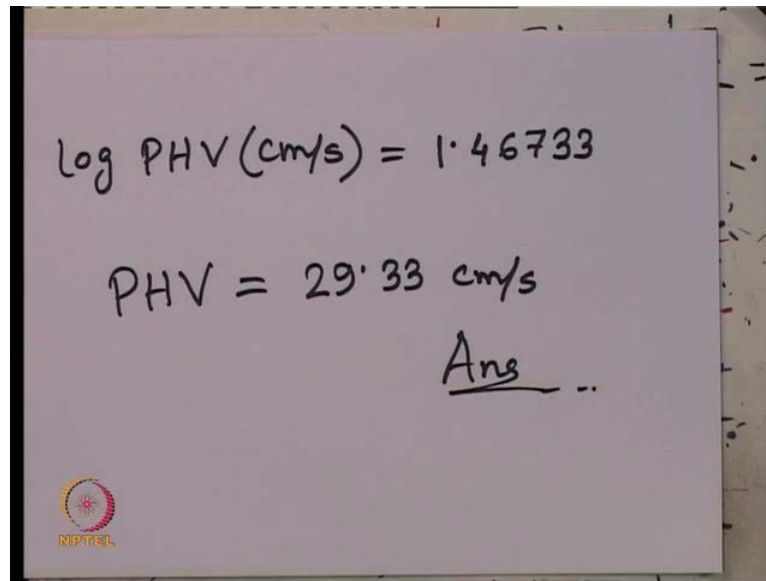 log PHV (cm/s) = 1.46733
PHV = 29.33 cm/s
Ans
NPTEL